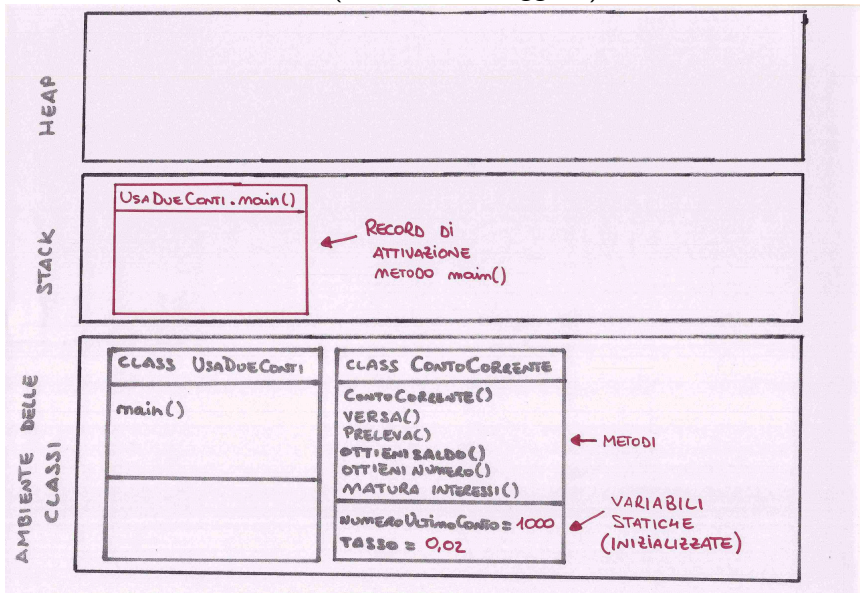 HEAP
STACK
UsaDueConti.main()
RECORD DI
ATTIVAZIONE
METODO main()
AMBIENTE DELLE
CLASSI
CLASS UsaDueConti
main()
CLASS ContoCorrente
ContoCorrente()
VERSA()
PRELEVA()
OTTIENISALDO()
OTTIENI NUMERO()
MATURA INTERESSI()
METODI
NUMEROUltimoConto = 1000
TASSO = 0,02
VARIABILI
STATICHE
(INIZIALIZZATE)